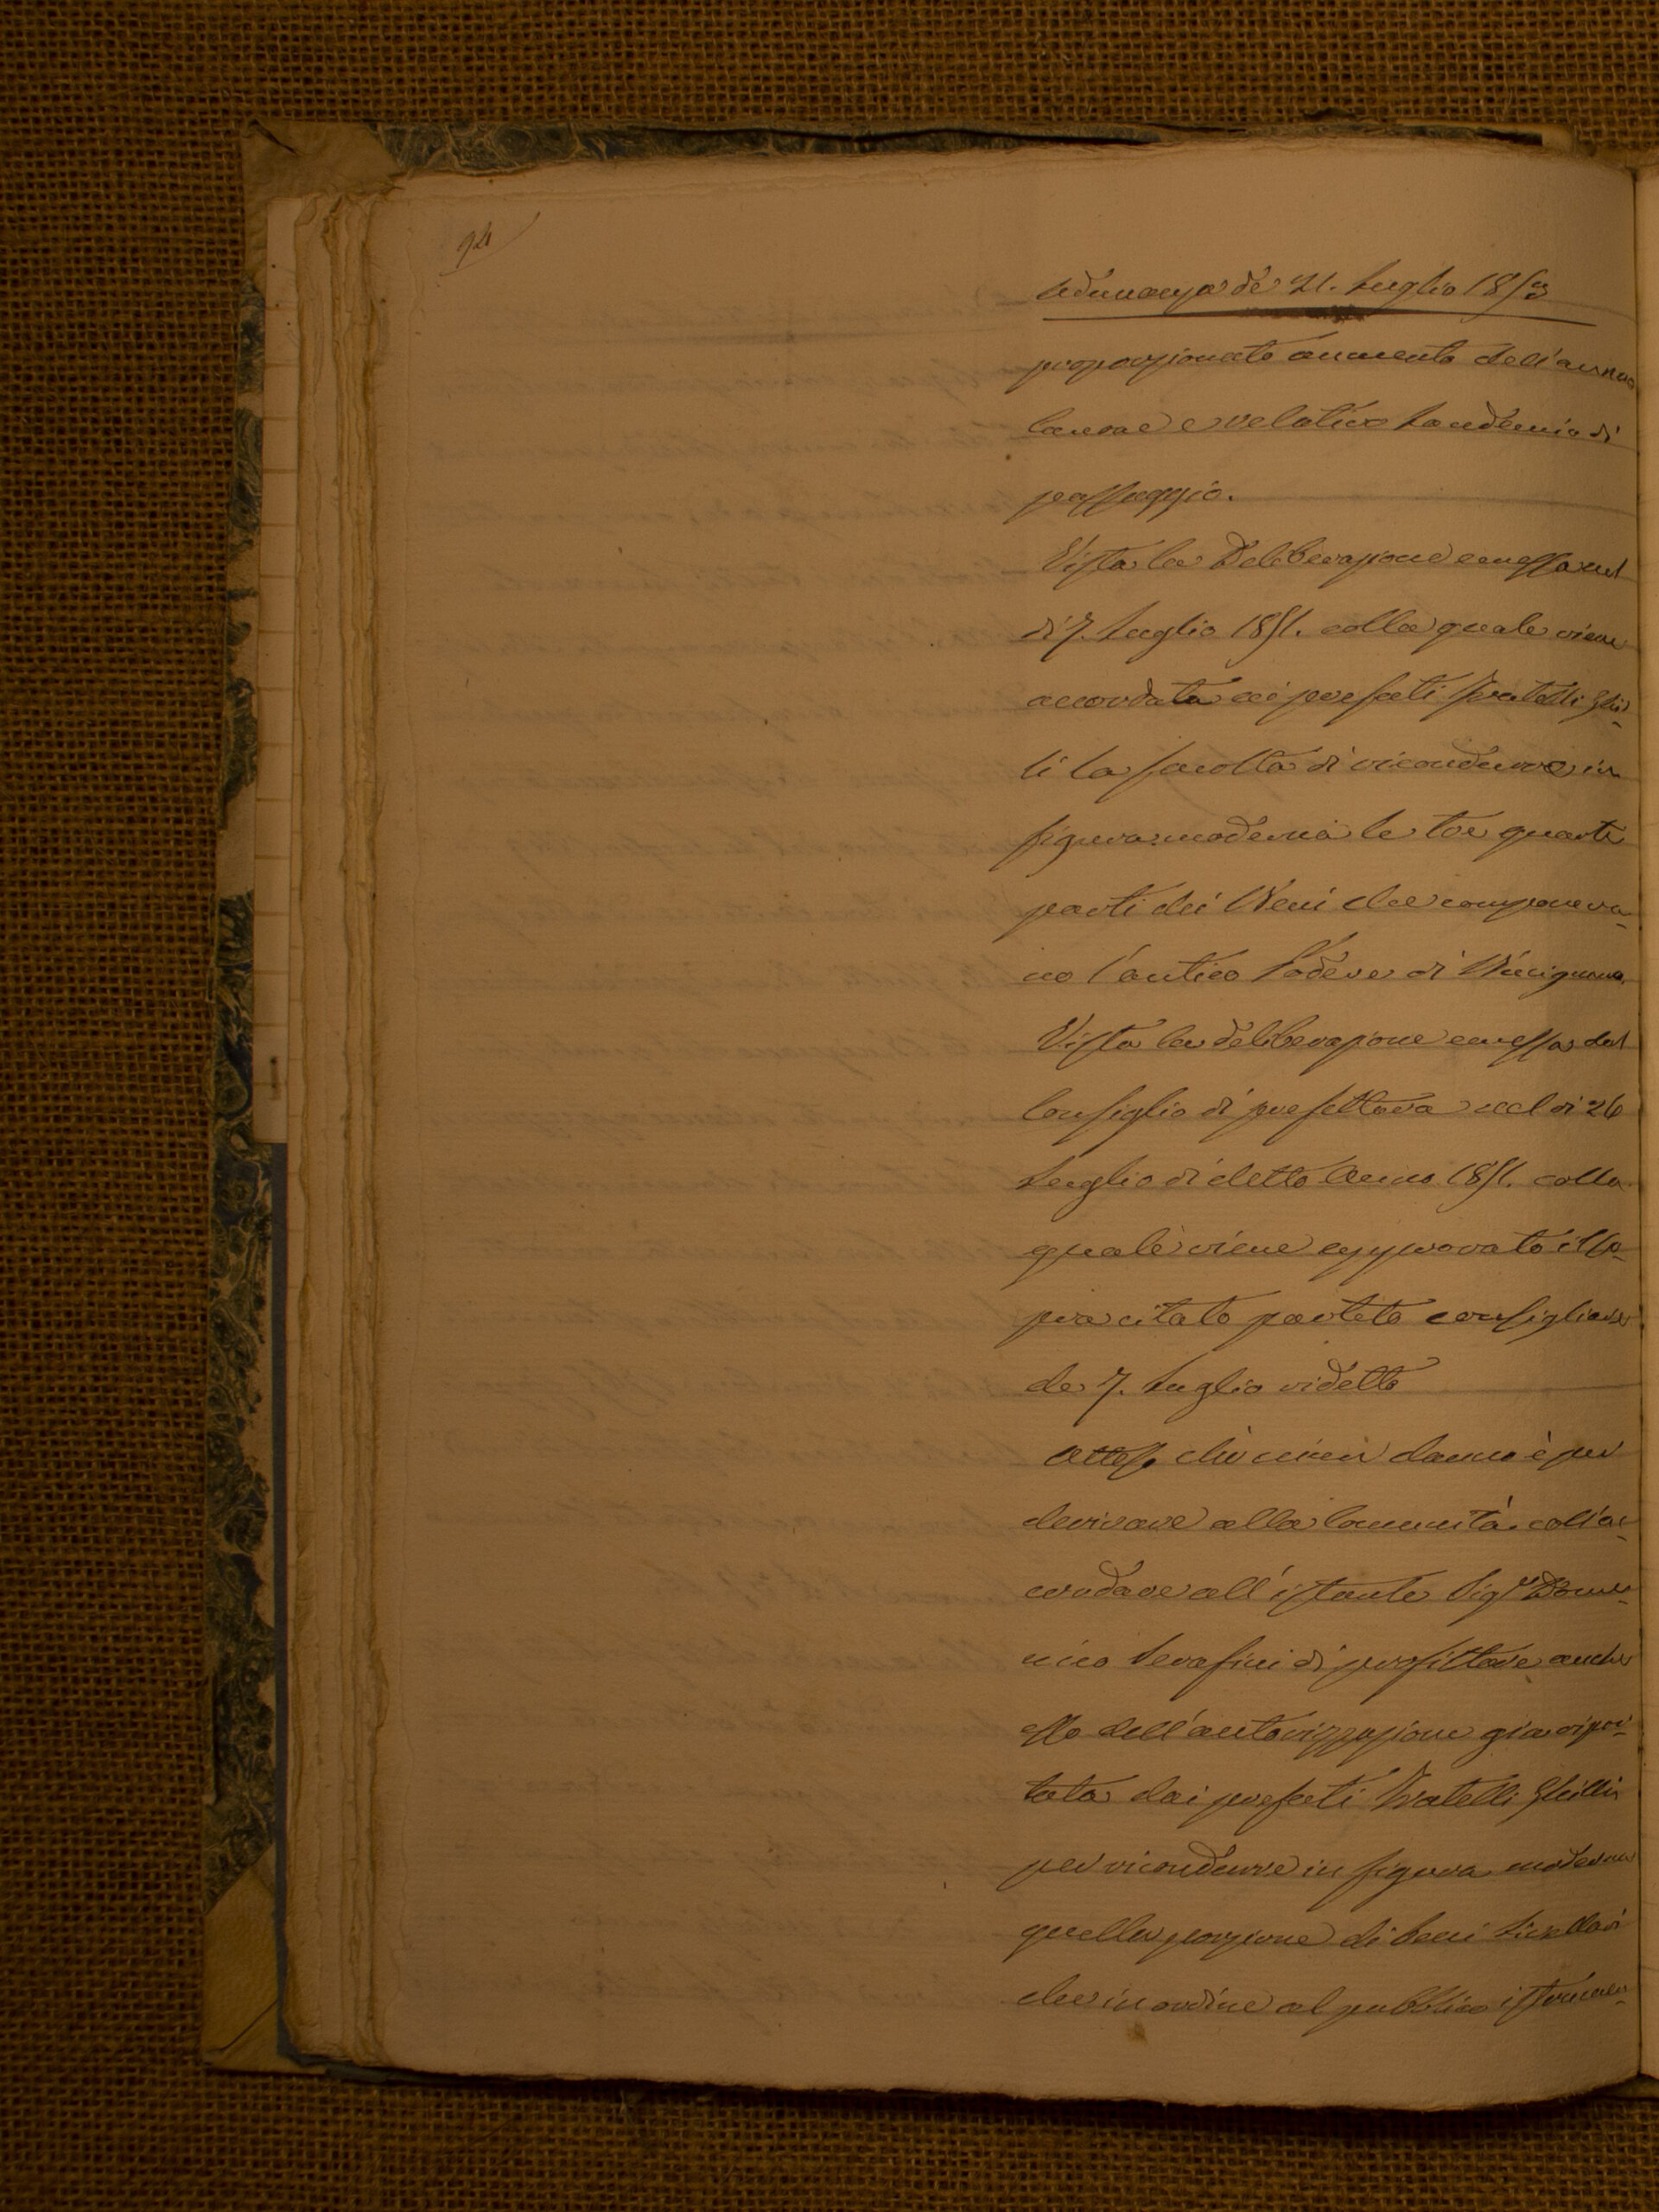 94
Adunanza de' 21. Luglio 1853
proporzionato aumento dell'annuo
Canone e relativo Laudemio di
passaggio.
Vista la Deliberazione emessa nel
dì 7. Luglio 1851. colla quale viene
accordata ai prefati Fratelli Ghil-
li la facoltà di ricondurre in
figura moderna le tre quarte
parti dei Beni che componeva-
no l'antico Podere di
Vista la deliberazione emessa dal
Consiglio di prefettura nel dì 26
Luglio di detto Anno 1851. colla
quale viene approvato il so-
pra citato partito consigliare
de 7. Luglio ridetto
Atteso chè niun danno è per
derivare alla Comunità coll'ac-
cordare all'istante Sigr. Dome-
nico Serafini di profittare anche
esso dell'autorizzazione già ripor-
tata dai prefati Fratelli Ghilli
per ricondurre in figura moderna
quella porzione di beni Livellari
che in ordine al pubblico istrumen-